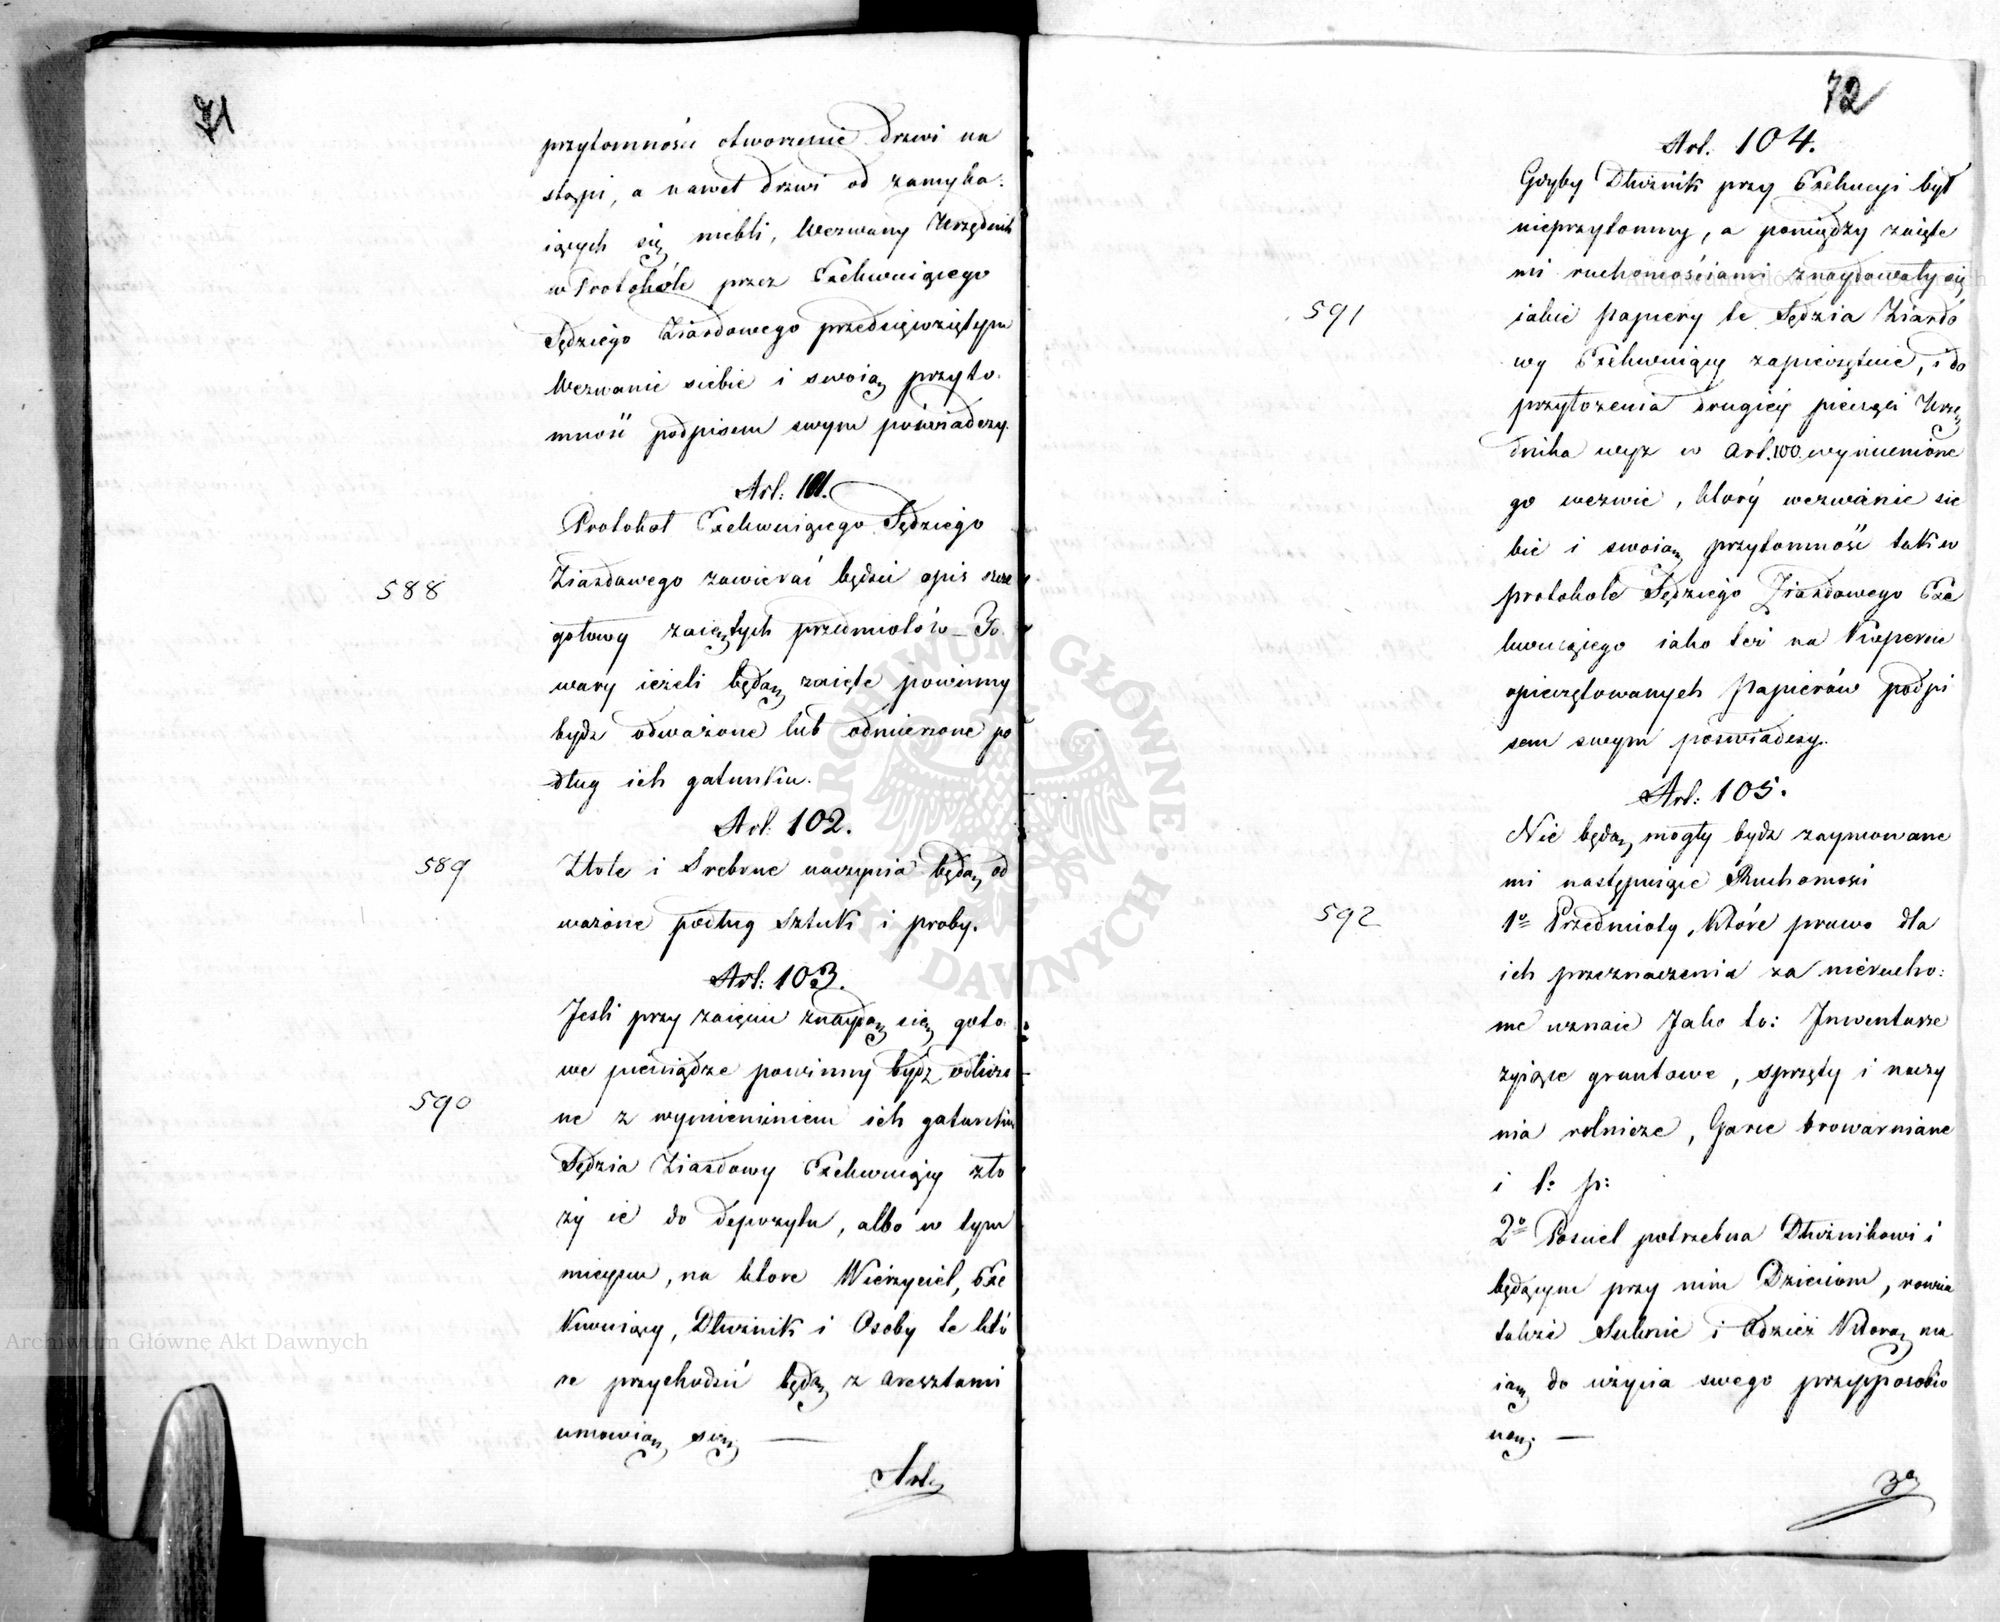 71
przytomności otworzenie drzwi na
stąpi, a nawet drzwi od zamyka:
iących się mebli, Wezwany Urzędnik
w Protokóle przez Exekwuiącego
Sędziego Ziazdowego przedsięwziętym
Wezwanie siebie i swoią przyto:
mność podpisem swym poświadczy.
Art: 101.
Protokół Exekwuiącego Sędziego
588
Ziazdowego zawierać będzie opis szcze
gołowy zaiętych przedmiotów – To
wary ieżeli będą zaięte powinny
bydz odważone lub odmierzone po
dług ich gatunku.
Art: 102.
589
Złote i Srebrne naczynia będą od
ważone podług sztuk i proby.
Art: 103.
Jeśli przy zaięciu znaydą się goto
we pieniądze powinny bydz odliczo
590
ne z wymienieniem ich gatunku
Sędzia Ziazdowy Exekwuiący zło
ży ie do depozytu, albo w tym
mieyscu, na ktore Wierzyciel, Exe
kwuiący, Dłużnik i Osoby te któ
re przychodzić będą z aresztami
umowią się; —
Art:
72
Art: 104.
Gdyby Dłużnik przy Exekucyi był
nieprzytomny, a pomiędzy zaięte
mi ruchomościami znaydowały się
591
iakie papiery te Sędzia Ziazdo
wy Exekwuiący zapieczętuie, i do
przyłożenia drugiey pieczęci Urzę
dnika wyz w Art. 100. wymienione
go wezwie, który wezwanie sie
bie i swoią przytomność tak w
protokole Sędziego Ziazdowego Exe
kwuiącego iako też na Kopercie
opieczętowanych Papierów podpi
sem swym poświadczy.
Art: 105.
Nie będą mogły bydz zaymowane
mi następuiące Ruchomości
592
1º Przedmioty, które prawo dla
ich przeznaczenia za nierucho:
me uznaie Jako to: Inwentarze
zyiące gruntowe, sprzęty i naczy
nia rolnicze, Garce browarniane
i t: p:
2º Posciel potrzebna Dłużnikowi i
będącym przy nim Dzieciom, rownie
takze Suknie i Odzież Którą ma
ią do użycia swego przysposobio
ną. —
3º
Archiwum Główne Akt Dawnych
Archiwum Główne Akt Dawnych
ARCHIWUM GŁÓWNE AKT DAWNYCH